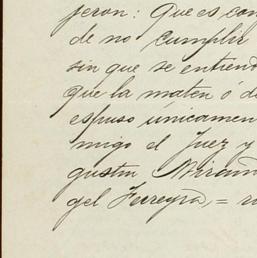 jeron: Que es con
de no cumplir
sin que se entiend
que la maten ó de
espuso unicamen
migo el Juez y
gustin Miram
gel Ferreyra, = r